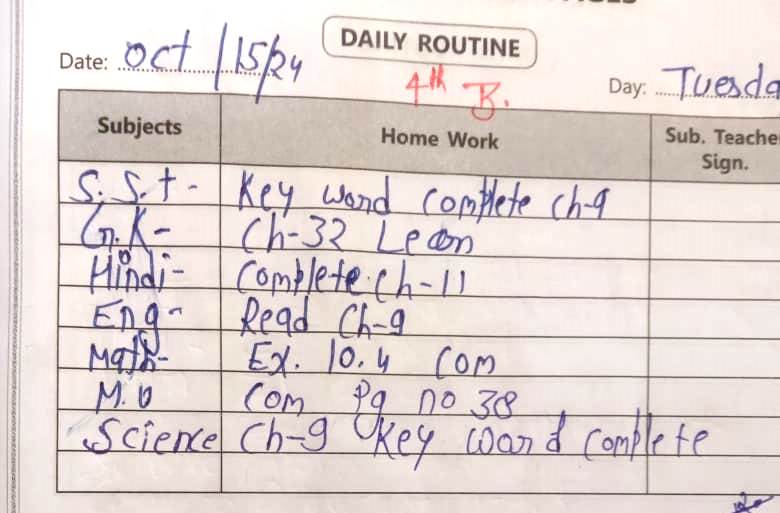 DAILY ROUTINE
Date: Oct/15/24
4th B.
Day: Tuesda
Subjects Home Work Sub. Teache Sign.
S.S.t - Key word complete ch-9
G.K- Ch-32 Learn
Hindi- Complete ch-11
Eng- Read Ch-9
Math- Ex. 10.4 Com
Com Pg no 38
Science Ch-9 Key word complete